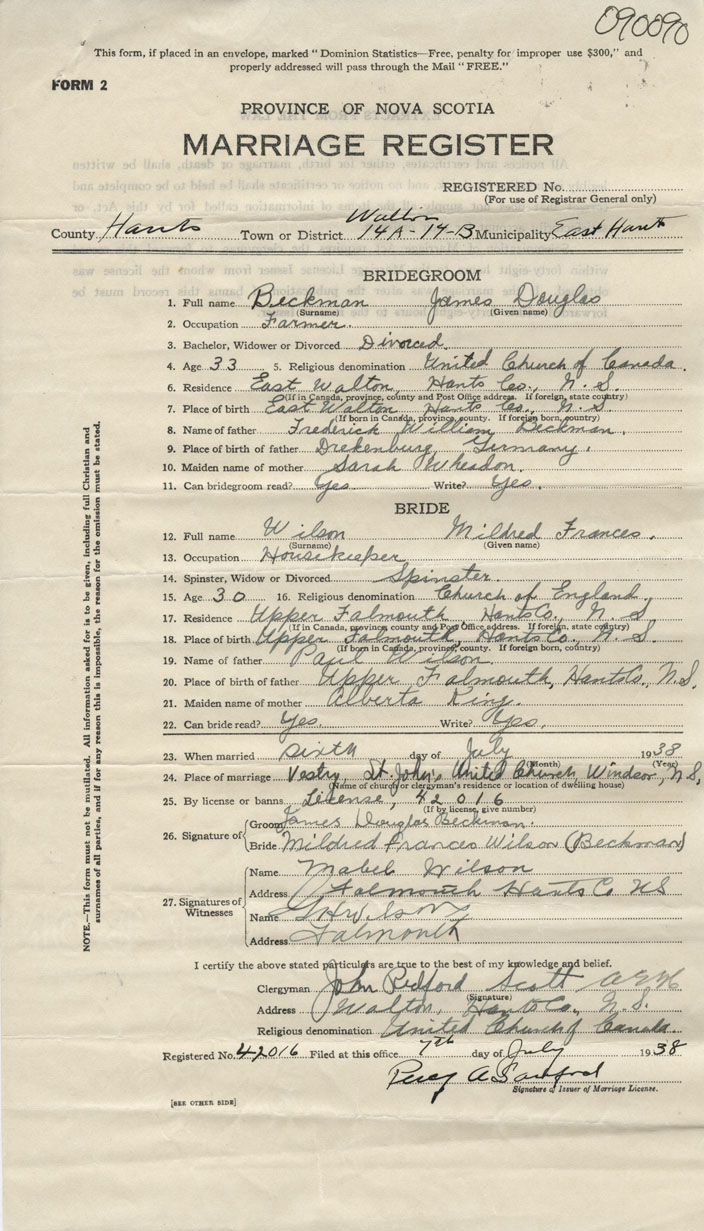 090090
This form, if placed in an envelope, marked "Dominion Statistics—Free, penalty for improper use $300," and
properly addressed will pass through the Mail "FREE."
FORM 2
PROVINCE OF NOVA SCOTIA
MARRIAGE REGISTER
REGISTERED No.
(For use of Registrar General only)
Walton
County Hants Town or District 14A-14-B Municipality East Hants
BRIDEGROOM
1. Full name Beckman James Douglas
(Surname) (Given name)
2. Occupation Farmer.
3. Bachelor, Widower or Divorced Divorced.
4. Age 33 5. Religious denomination United Church of Canada.
6. Residence East Walton, Hants Co., N. S.
(If in Canada, province, county and Post Office address. If foreign, state country)
7. Place of birth East Walton Hants Co., N. S
(If born in Canada, province, county. If foreign born, country)
8. Name of father Frederick William Beckman.
9. Place of birth of father Drekenburg, Germany.
10. Maiden name of mother Sarah Wheadon.
11. Can bridegroom read? Yes Write? Yes.
BRIDE
12. Full name Wilson Mildred Frances.
(Surname) (Given name)
13. Occupation Housekeeper
14. Spinster, Widow or Divorced Spinster
15. Age 30 16. Religious denomination Church of England.
17. Residence Upper Falmouth Hants Co., N. S
(If in Canada, province county and Post Office address. If foreign, state country)
18. Place of birth Upper Falmouth, Hants Co., N. S
(If born in Canada, province, county. If foreign born, country)
19. Name of father Paul Wilson.
20. Place of birth of father Upper Falmouth, Hants Co, N.S.
21. Maiden name of mother Alberta King.
22. Can bride read? Yes. Write? Yes.
23. When married sixth day of July 1938
(Month) (Year)
24. Place of marriage Vestry, St. John's United Church, Windsor, N.S,
(Name of church or clergyman's residence or location of dwelling house)
25. By license or banns License, 42016
(If by license, give number)
26. Signature of Groom James Douglas Beckman.
Bride Mildred Frances Wilson (Beckman)
27. Signatures of Witnesses
Name Mabel Wilson
Address Falmouth Hants Co NS
Name Wilson
Address Falmouth
I certify the above stated particulars are true to the best of my knowledge and belief.
Clergyman John Redford Scott
(Signature)
Address Walton, Hants Co., N.S.
Religious denomination United Church of Canada.
Registered No. 42016 Filed at this office 7th day of July 1938
Percy A Sanford
Signature of Issuer of Marriage License.
[SEE OTHER SIDE]
NOTE.—This form must not be mutilated. All information asked for is to be given, including full Christian and
surnames of all parties, and if for any reason this is impossible, the reason for the omission must be stated.